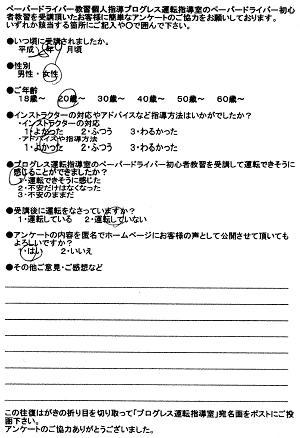 ペーパードライバー教習個人指導プログレス運転指導室のペーパードライバー初心
者教習を受講頂いたお客様に簡単なアンケートのご協力をお願いしております。
いずれか該当する箇所にご記入や〇で囲んで下さい。
●いつ頃に受講されましたか。
平成 年 月頃
●性別
男性・女性
●ご年齢
18歳～ 20歳～ 30歳～ 40歳～ 50歳～ 60歳～
●インストラクターの対応やアドバイスなど指導方法はいかがでしたか？
・インストラクターの対応
1・よかった 2・ふつう 3・わるかった
・アドバイスや指導方法
1・よかった 2・ふつう 3・わるかった
●プログレス運転指導室のペーパードライバー初心者教習を受講して運転できそうに
感じることができましたか？
1・運転できそうに感じた
2・不安だけはなくなった
3・不安のままだ
●受講後に運転をなさっていますか？
1・運転している 2・運転していない
●アンケートの内容を匿名でホームページにお客様の声として公開させて頂いても
よろしいですか？
1・はい 2・いいえ
●その他ご意見・ご感想など
この往復はがきの折り目を切り取って「プログレス運転指導室」宛名面をポストにご投
函下さい。
アンケートのご協力ありがとうございました。